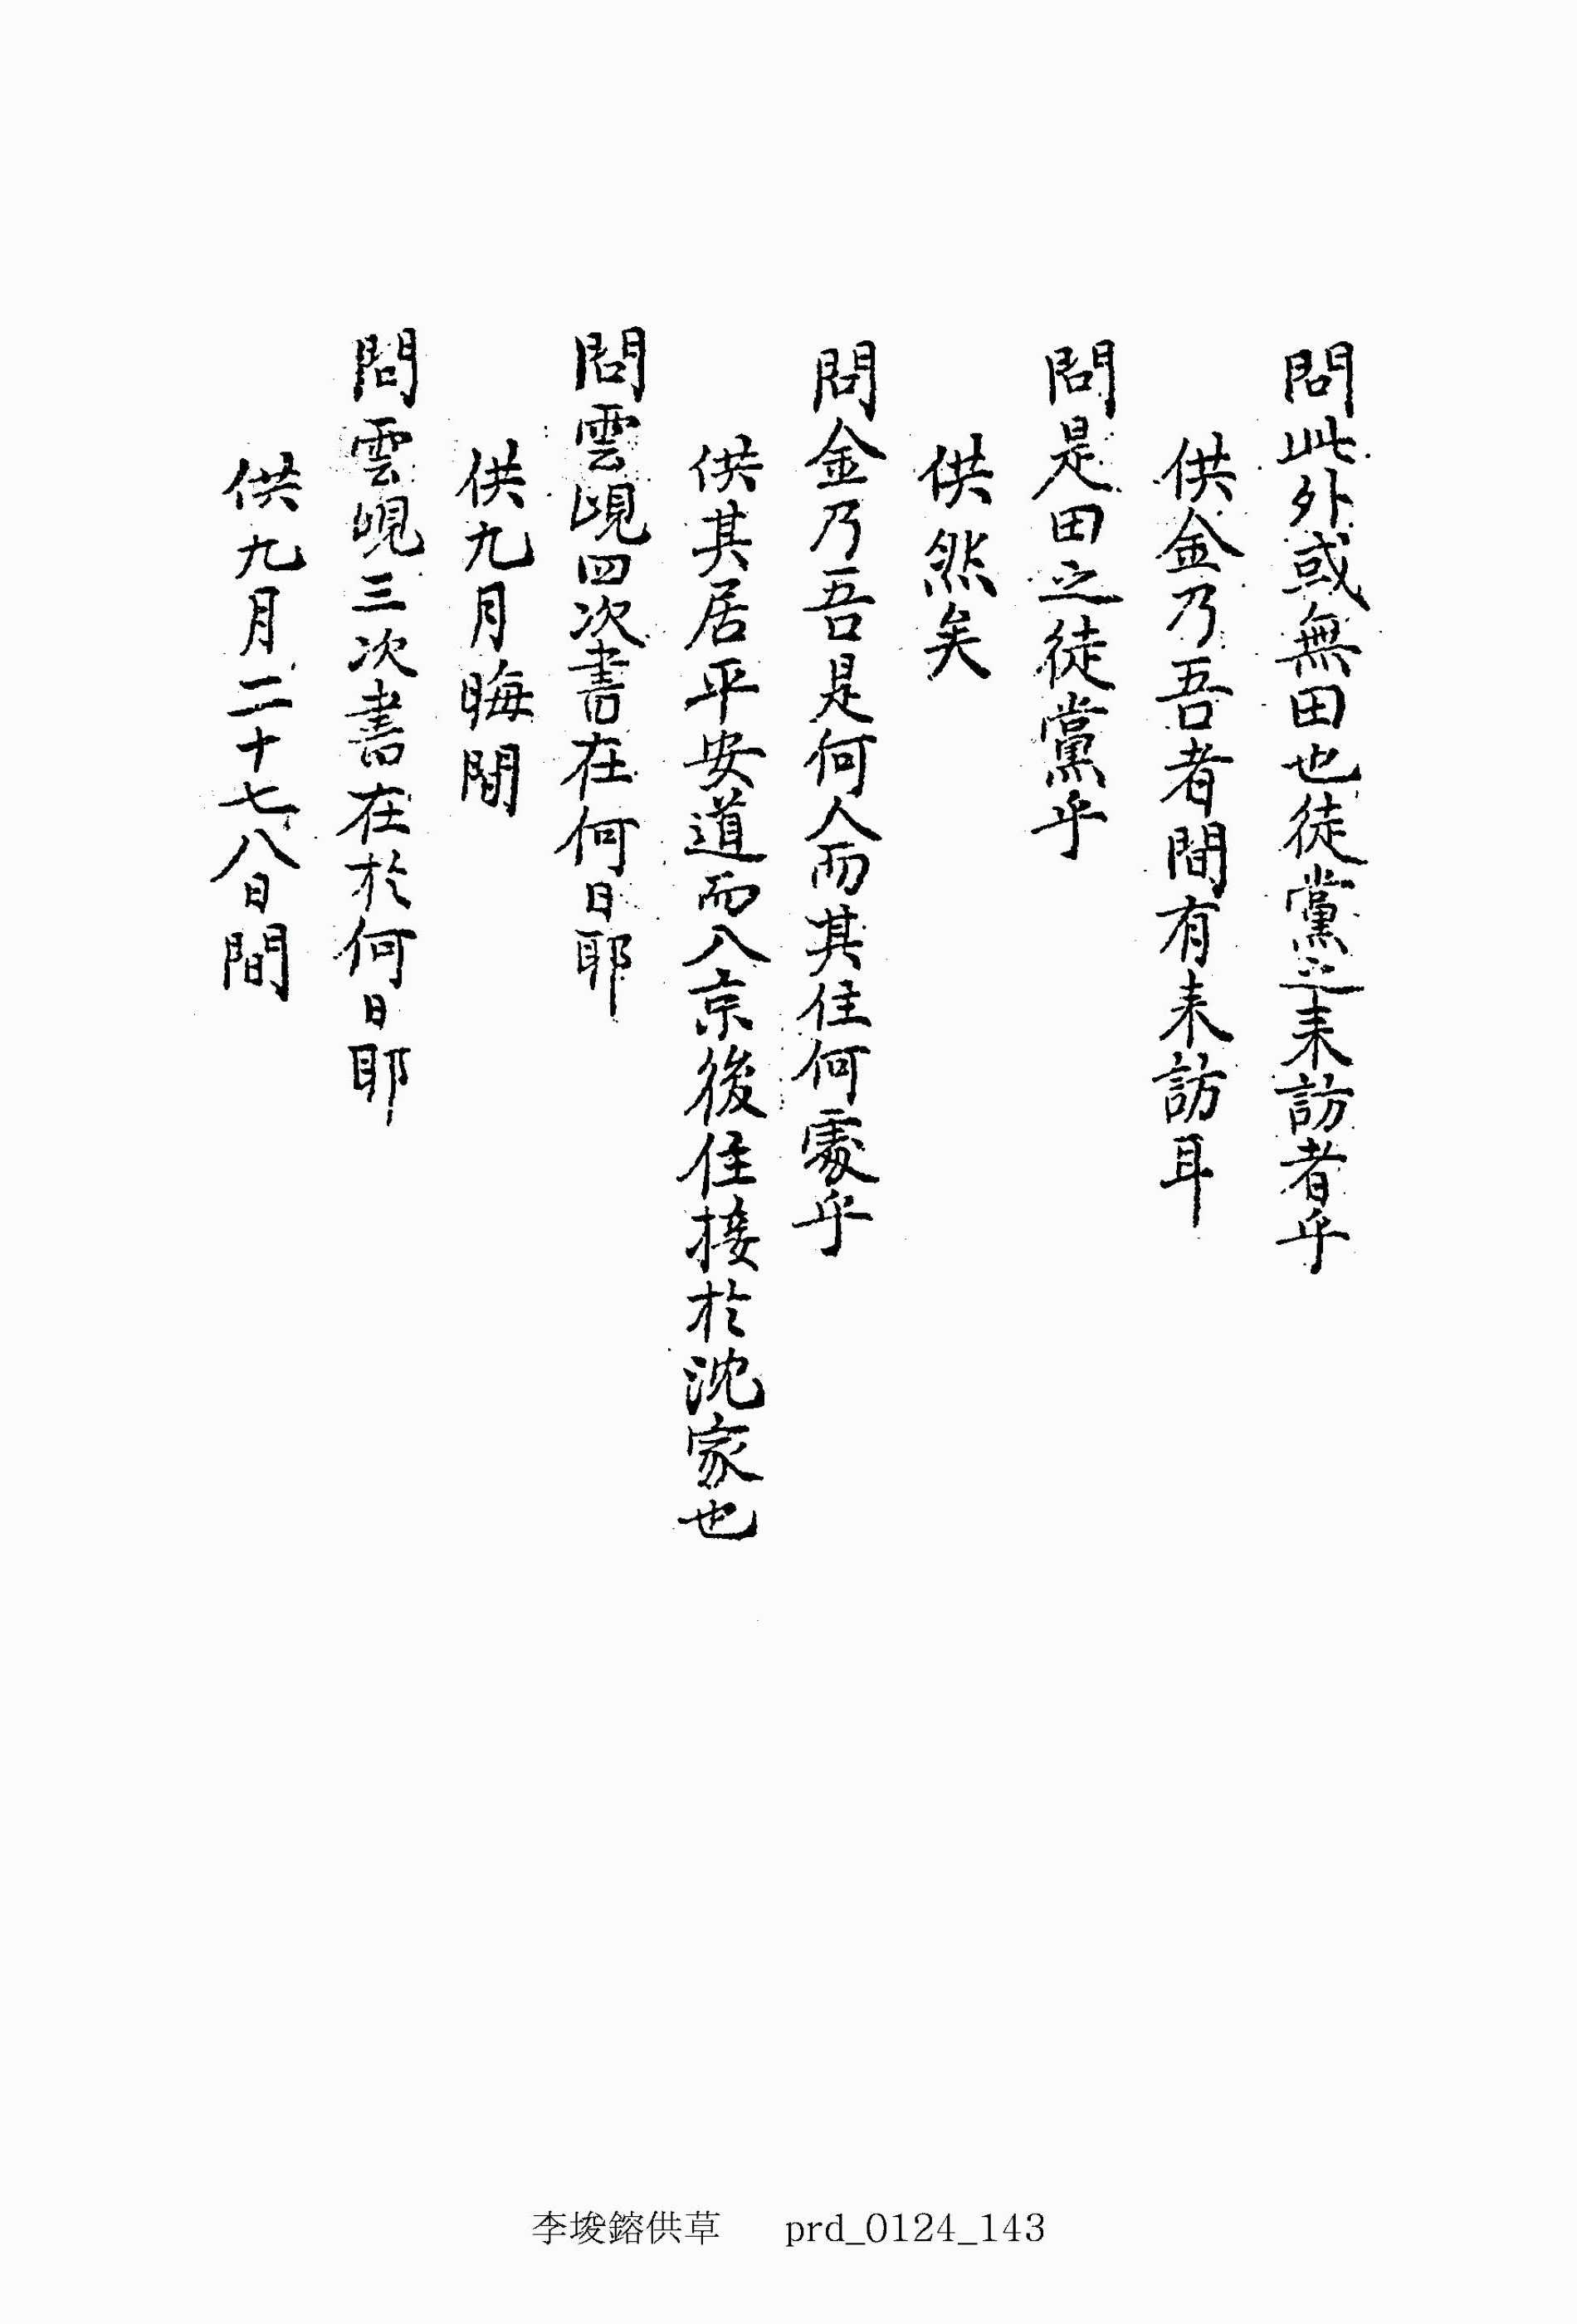 問此外或無田也徒黨之来訪者乎
供金乃吾者間有来訪耳
問是田之徒黨乎
供然矣
問金乃吾是何人而其住何處乎
供其居平安道而入京後住接於沈家也
問雲峴四次書在何日耶
供九月晦間
問雲峴三次書在於何日耶
供九月二十七八日間
李埈鎔供草 prd_0124_143